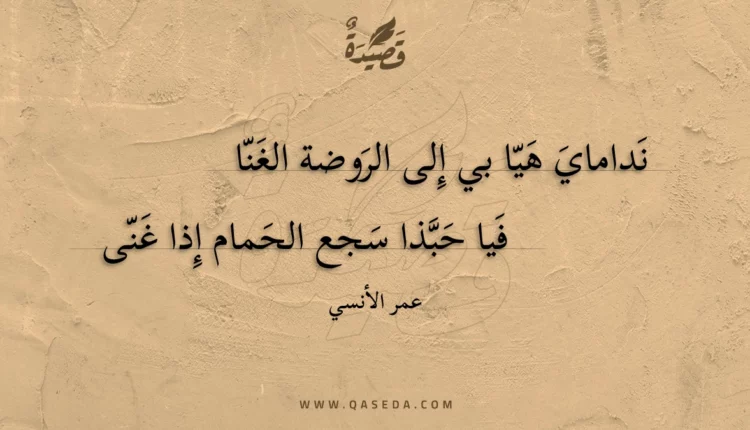 قَصِيْدَةٌ
نَدامايَ هَيّا بي إِلى الرَوضة الغَنّا
فَيا حَبَّذا سَجع الحَمام إِذا غَنّى
عمر الأنسي
WWW.QASEDA.COM